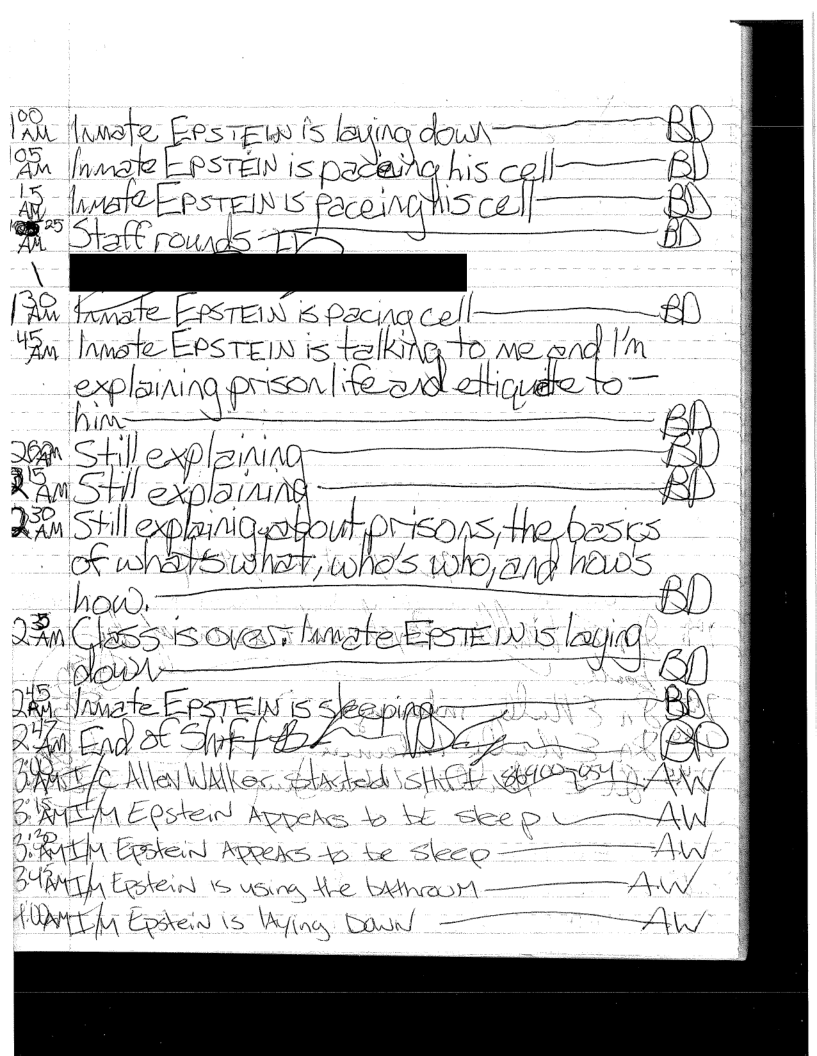 1:00 AM Inmate EPSTEIN is laying down BD
1:05 AM Inmate EPSTEIN is paceing his cell BD
1:15 AM Inmate EPSTEIN is paceing his cell BD
25 AM Staff rounds BD
1:30 AM Inmate EPSTEIN is pacing cell BD
1:45 AM Inmate EPSTEIN is talking to me and I'm
explaining prison life and ettiquite to —
him BD
2:00 AM Still explaining BD
2:15 AM Still explaining BD
2:30 AM Still explainig about prisons, the basics
of what's what, who's who, and how's
how. BD
2:35 AM Class is over. Inmate EPSTEIN is laying
down BD
2:45 AM Inmate EPSTEIN is sleeping BD
2:47 AM End of Shift BD
3:00 AM I/C Allen Walker started shift 86400-054 AW
3:15 AM I/M Epstein Appears to be sleep AW
3:30 AM I/M Epstein Appears to be sleep AW
3:43 AM I/M Epstein is using the bathroom A.W
4:00 AM I/M Epstein is laying Down AW